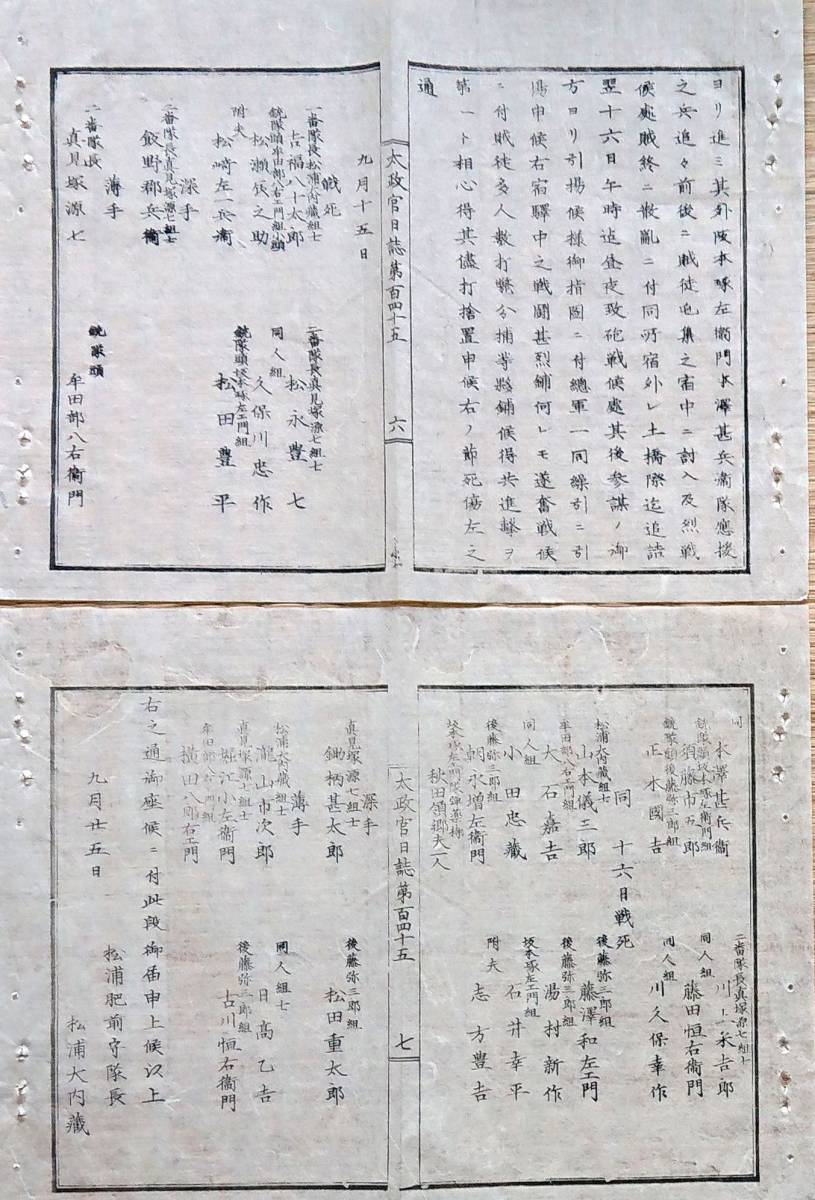 ヨリ進ミ其外阪本琢左衞門木澤甚兵衞隊應援
之兵追々前後ニ賊徒屯集之宿中ニ討入及烈戰
候處賊終ニ散亂ニ付同所宿外レ土橋際迄追詰
翌十六日午時迄昼夜致砲戦候處其後參謀ノ御
方ヨリ引揚候様御指圖ニ付總軍一同繰引ニ引
揚申候右宿驛中之戰闘甚烈鋪何レモ遂奮戦候
ニ付賊徒多人數打斃分捕等夥鋪候得共進撃ヲ
第一ト相心得其儘打捨置申候右ノ節死傷左之
通
太政官日誌第百四十五
六
九月十五日
戰死
一番隊長松浦大内藏組士
吉福八十太郎
二番隊長真見塚源七組士
松永豊七
銃隊頭牟田部八右エ門組小頭
松瀬辰之助
同人組
久保川忠作
附夫
松崎左一兵衞
銃隊頭坂本琢左エ門組
松田豊平
深手
二番隊長真見塚源七組士
飯野郡兵衞
薄手
二番隊長
真見塚源七
銃隊頭
牟田部八右衞門
同
木澤甚兵衞
二番隊長真塚源七組士
川上永吉郎
銃隊頭坂本琢左衞門組
須藤市五郎
同人組
藤田恒右衞門
銃隊頭後藤弥三郎組
正木國吉
同人組
川久保幸作
同十六日戰死
松浦大内藏組士
山本儀三郎
後藤弥三郎組
藤澤和左エ門
牟田部八右エ門組
大石嘉吉
後藤弥三郎組
湯村新作
同人組
小田忠藏
坂本琢左エ門組
石井幸平
後藤弥三郎組
朝永増左衞門
附夫
志方豊吉
坂本琢左エ門隊弾薬持
秋田領郷夫一人
太政官日誌第百四十五
七
深手
真見塚源七組士
鋤柄甚太郎
後藤弥三郎組
松田重太郎
薄手
松浦大内藏組士
瀧山市次郎
同人組士
日高乙吉
真見塚源七組士
堀江小左衞門
後藤弥三郎組
古川恒右衞門
牟田部八右エ門組
横田八郎右エ門
右之通御座候ニ付此段御届申上候以上
松浦肥前守隊長
九月廿五日
松浦大内藏